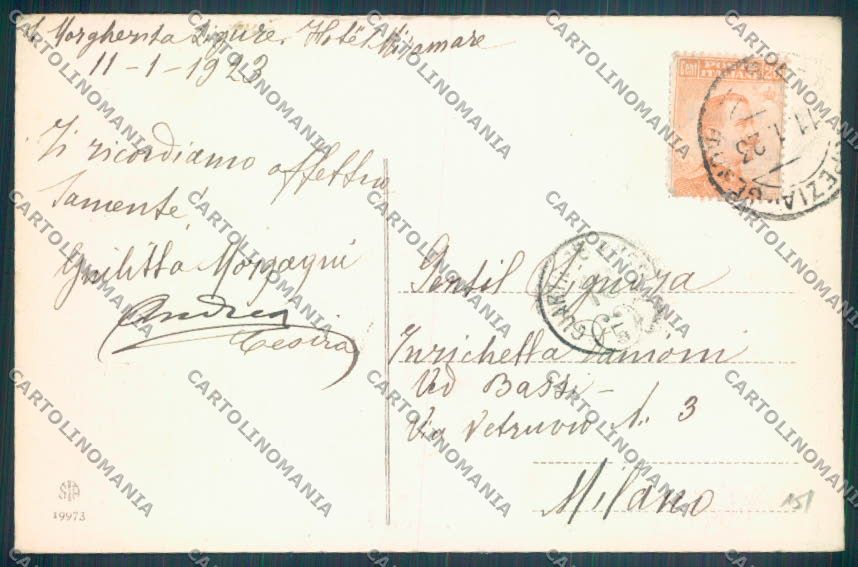 S. Margherita Ligure. Hotel Miramare
11-1-1923
Ti ricordiamo affettuo
samente
Giulitta Morgagni
Andrea
Cesira
CENT POSTE
ITALIANE
SPEZIA
11.1.23
Gentil Signora
Enrichetta
Ved Bassi-
Via Vetruvio N. 3
Milano
151
19973
CARTOLINOMANIA